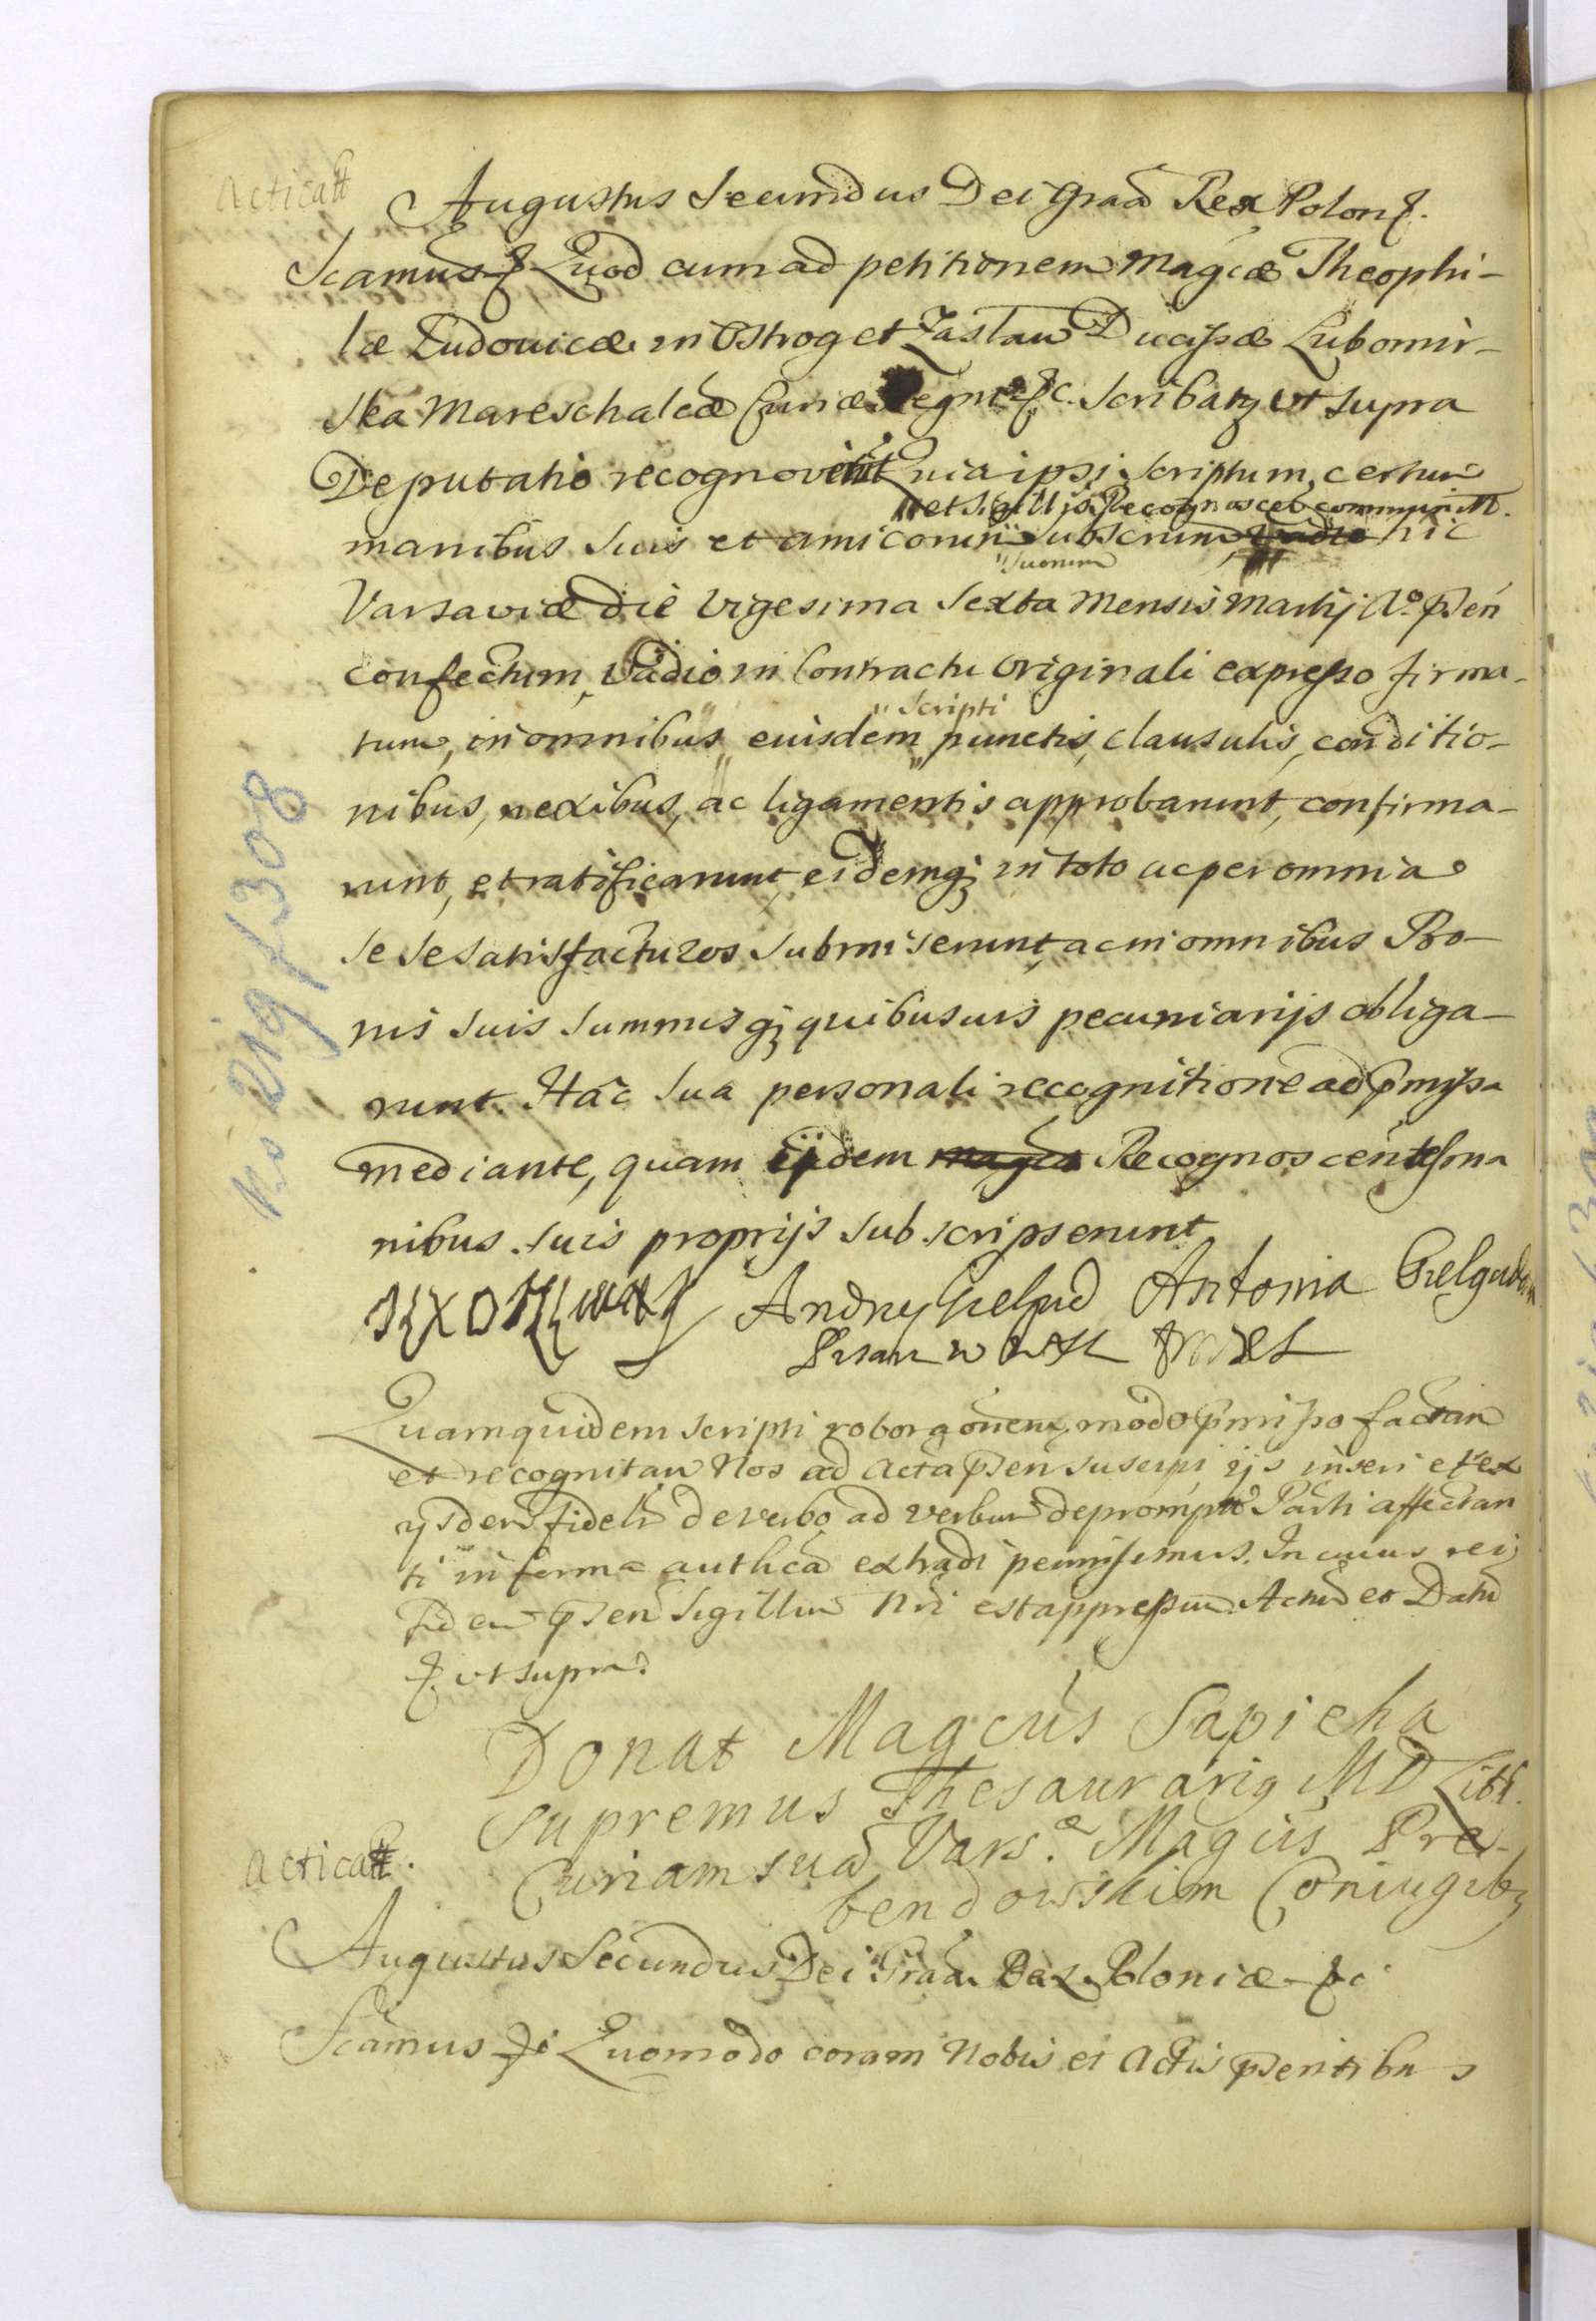 Acticatt
Augustus Secundus Dei Graã Rex Polon &.
Scamus & Quod cum ad petitionem Magcæ Theophi-
læ Ludovicæ in Ostrog et Zaslaw Ducissæ Lubomir-
ska Mareschalcæ Curiæ Regni &c. Scribatq ut supra
Deputatio recognoverit Quia ipsi Scriptum certum
et sigillis Recognoscen communitt.
manibus suis et amicorum subscriptum vadio hic
suorum
Varsaviæ die vigesima sexta Mensis Martij Aº. pñsen
confectum, vadio in Contractu Originali expresso firma-
scripti
tum, in omnibus euisdem punctis, clausulis, conditio-
nibus, nexibus, ac ligamentis approbarunt, confirma-
runt, et ratificarunt, eidemq in toto ac per omnia
sese satisfacturos submiserunt, ac in omnibus Bo-
nis suis summisq quibusuis pecuniarijs obliga-
runt. Hac sua personali recognitione ad pmissa
mediante, quam ijdem Magci Recognoscentes ma
nibus suis proprijs subscripserunt
Antonia
Quamquidem scripti roboraõnem, modo pmisso factam
et recognitam Nos ad Acta pñsen suscipi ijs inseri et ex
ijsdem fidelr de verbo ad verbum deprompta Parti affectan
ti in forma authca extradi permisimus. In cuius rei
fidem pñsen Sigillum Nri est appressum. Actum et Datum
& ut supra.
Donat Magcus Sapieha
Supremus Thesaurarig MD Lith.
Curiam suã Varsæ. Magcis Pre-
bendowskim Coniugibq
Acticatt.
Augustus Secundus Dei Graã Rex Poloniæ &c
Scamus & Quomodo coram Nobis et Actis psentibus
No Rig 1308